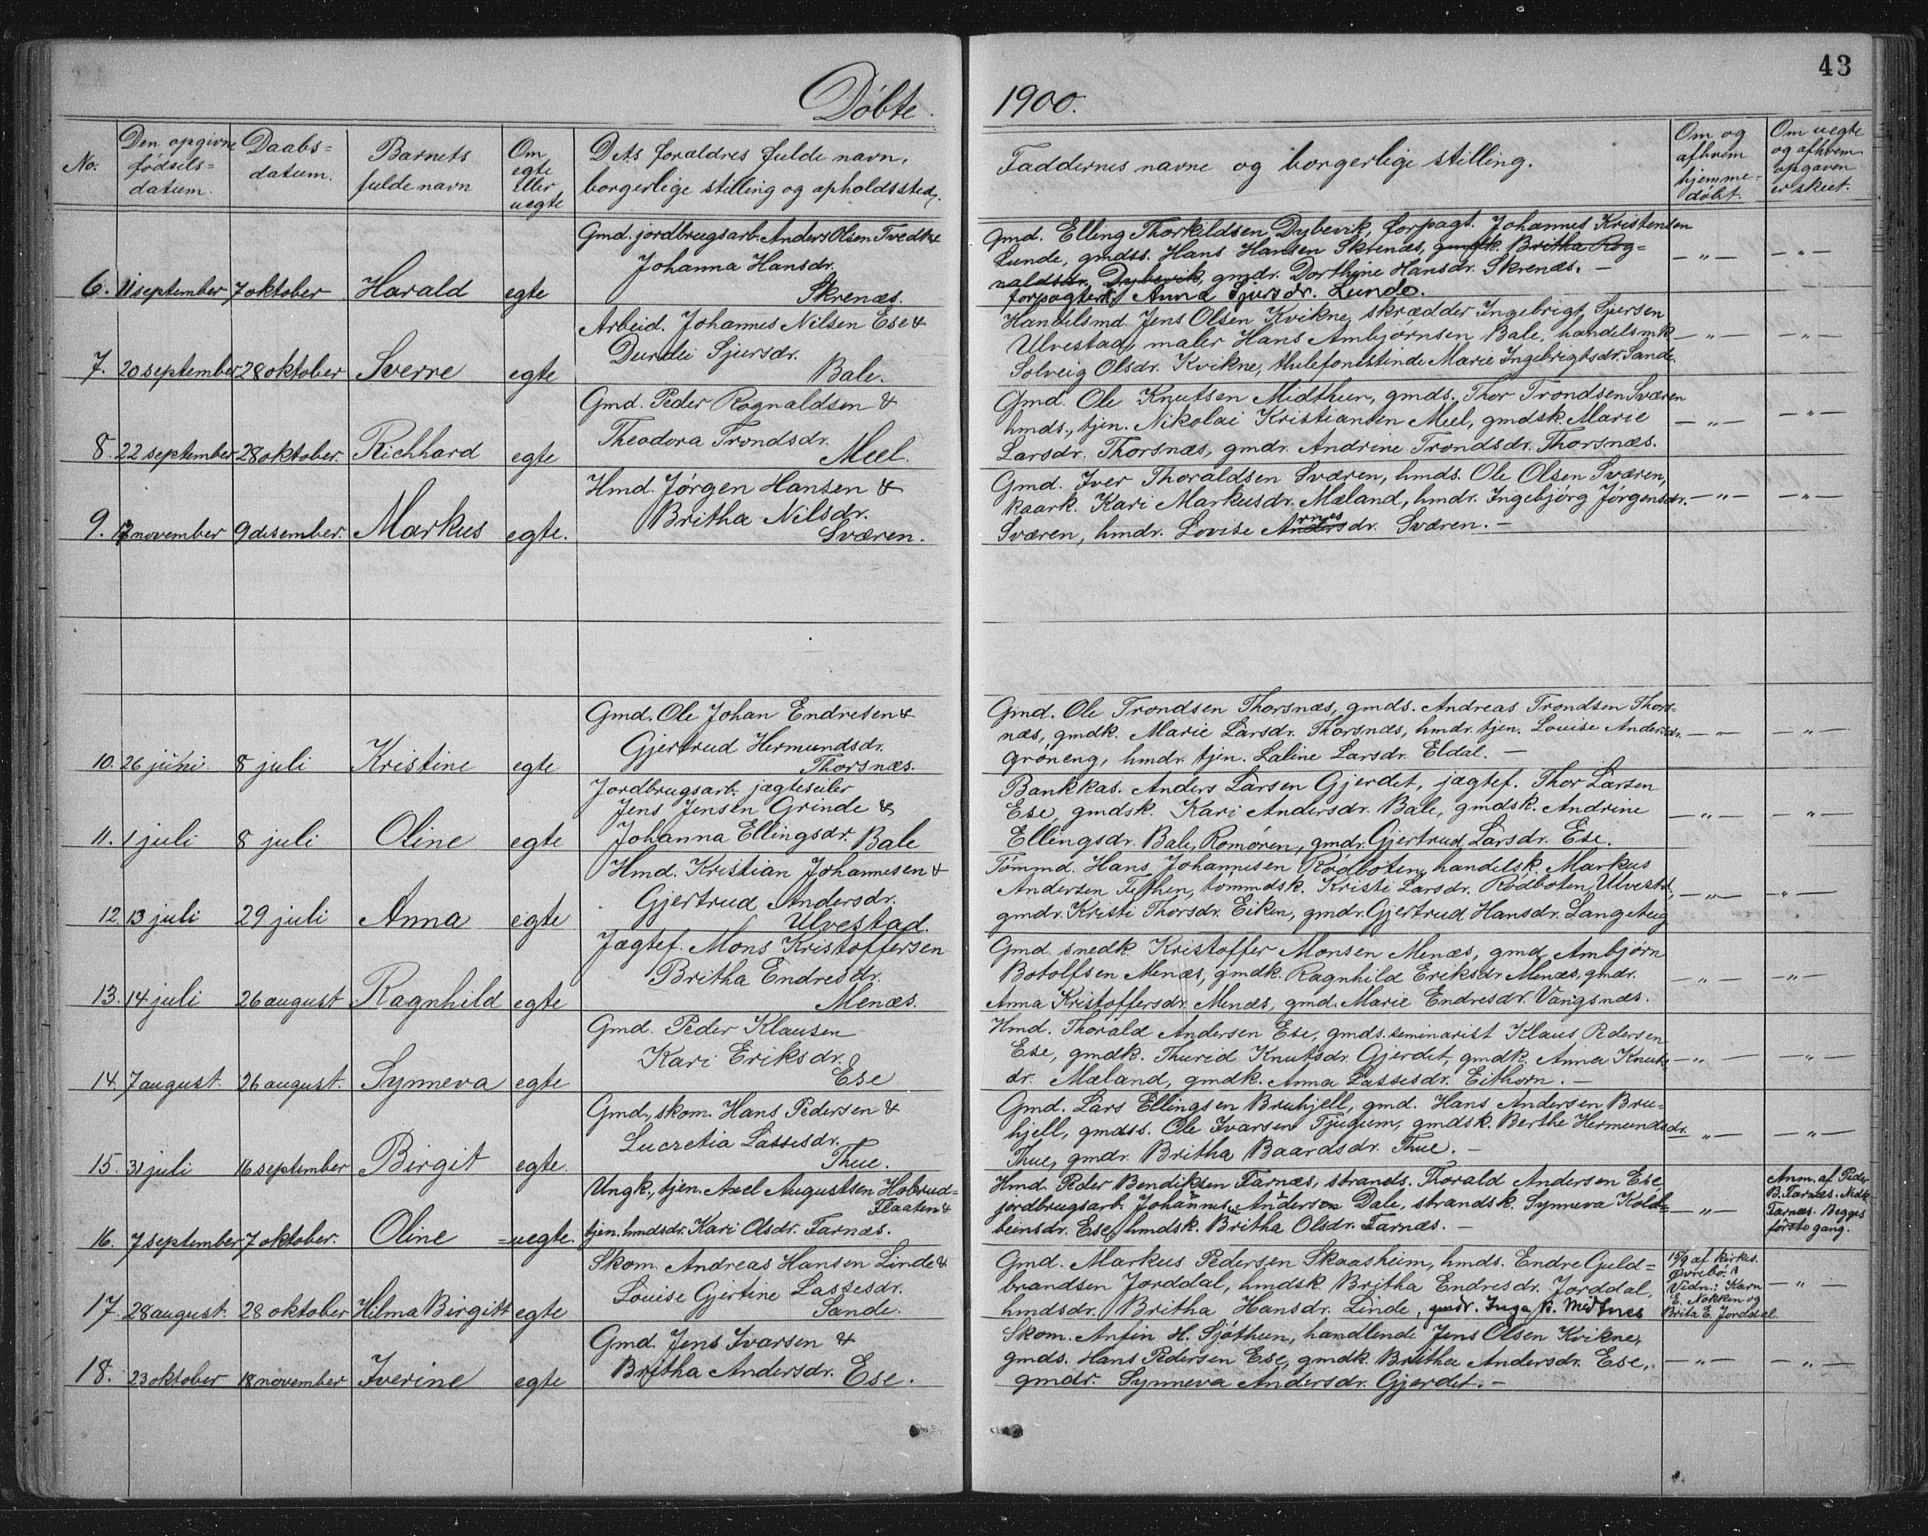 43
Døbte. 1900.
No.
Den opgivne fødsels-datum.
Daabs-datum.
Barnets fulde navn
Om egte eller uegte
Dets foraldres fulde navn, borgerlige stilling og opholdssted.
Faddernes navne og borgerlige stilling.
Om og afhvem hjemme-døbt.
Om uegte og afhvem opgaven er skeet.
Gmd. jordbrugsarb. Anders Olsen Tvedt &
Johanna Hansdr.
6. 11 september 7 oktober Harald egte Skrenæs.
Gmd. Elling Thorkildsen Dybevik, forpagt. Johannes Kristensen
Lunde, gmdss. Hans Hansen Skrenæs, gmdk. Britha Rog-
naldsdr. Dybevik, gmdr. Dorthine Hansdr. Skrenæs. —
forpagterk. Anna Sjursdr. Lunde.
— „ — — „ —
Arbeid. Johannes Nilsen Ese &
Durdei Sjursdr.
7. 20 september 28 oktober Sverre egte Bale.
Handelsmd. Jens Olsen Kvikne, skrædder Ingebrigt Sjursen
Ulvestad, maler Hans Ambjørnsen Bale, handelsmk.
Solveig Olsdr. Kvikne, Marie Ingebrigtsdr. Sande.
— „ — — „ —
Gmd. Peder Rognaldsen &
Theodora Trondsdr.
8. 22 september 28 oktober. Richhard egte Meel.
Gmd. Ole Knutsen Midthun, gmds. Thor Trondsen Sværen
hmds., tjen. Nikolai Kristiansen Meel, gmdsk. Marie
Larsdr. Thorsnæs, gmdr. Andrine Trondsdr. Thorsnæs.
— „ — — „ —
Hmd. Jørgen Hansen &
Britha Nilsdr.
9. 17 november 9 desember. Markus egte. Sværen.
Gmd. Iver Thoraldsen Sværen, hmds. Ole Olsen Sværen,
kaark. Kari Markusdr. Mæland, hmdr. Ingebjørg Jørgensdr.
Sværen, hmdr. Lovise Arnesdr. Sværen. —
— „ — — „ —
Gmd. Ole Johan Endresen &
Gjertrud Hermundsdr.
10. 26 juni. 8 juli Kristine egte Thorsnæs.
Gmd. Ole Trondsen Thorsnæs, gmds. Andreas Trondsen Thors-
næs, gmdk. Marie Larsdr. Thorsnæs, hmdr. tjen. Louise Andersdr.
Grøneng, hmdr. tjen. Laline Larsdr. Eldal. —
— „ — — „ —
Jordbrugsarb. jægteseiler
Jens Jensen Grinde &
11. 1 juli 8 juli Oline egte Johanna Ellingsdr. Bale
Bankkas. Anders Larsen Gjerdet, jægtef. Thor Larsen
Ese, gmdsk. Kari Andersdr. Bale, gmdsk. Andrine
Ellingsdr. Bale, Romøren, gmdr. Gjertrud Larsdr. Ese.
— „ — — „ —
Hmd. Kristian Johannesen &
Gjertrud Andersdr.
12. 13 juli 29 juli Anna egte Ulvestad.
Tømmd. Hans Johannesen Rødboten, handelsk. Markus
Andersen Tethen, tømmdsk. Kristi Larsdr. Rødboten, Ulvestd,
gmdr. Kristi Thorsdr. Eiken, gmdr. Gjertrud Hansdr. Langeteig
— „ — — „ —
Jægtef. Mons Kristoffersen
Britha Endresdr.
13. 14 juli 26 august Ragnhild egte Menæs.
Gmd. snedk. Kristoffer Monsen Menæs, gmd. Ambjørn
Botolfsen Menæs, gmdk. Ragnhild Eriksdr. Menæs, gmdr.
Anna Kristoffersdr. Menæs, gmd. Marie Endresdr. Vangsnæs.
— „ — — „ —
Gmd. Peder Klausen
Kari Eriksdr.
14. 7 august. 26 august. Synneva egte Ese
Hmd. Thorald Andersen Ese, gmds. seminarist Klaus Pedersen
Ese, gmdk. Thurid Knutsdr. Gjerdet, gmdk. Anna Knuts-
dr. Mæland, gmdk. Anna Lassesdr. Eithorn. —
— „ — — „ —
Gmd., skom. Hans Pedersen &
Lucretia Lassesdr.
15. 31 juli 16 september Birgit egte. Thue.
Gmd. Lars Ellingsen Bruhjell, gmd. Hans Andersen Bru-
hjell, gmdss. Ole Ivarsen Tjugum, gmdsk. Berthe Hermundsdr.
Thue, gmdr. Britha Baardsdr. Thue. —
— „ — — „ —
Ungk., tjen. Axel Augustsen Hobrud-
Flaaten &
16. 7 september 7 oktober. Oline =uegte. tjen. hmdsdr. Kari Olsdr. Farnæs.
Hmd. Peder Bendiksen Farnæs, strands. Thorald Andersen Ese
jordbrugsarb. Johannes Andersen Dale, strandsk. Synneva Kold-
beinsdr. Ese, hmdsk. Britha Olsdr. Farnæs. —
— „ —
Anm. af Peder
B. Farnæs. Nedk.
Farnæs. Begges
første gang.
Skom. Andreas Hansen Linde &
Louise Gjertine Lassesdr.
17. 28 august. 28 oktober Hilma Birgitt egte Tande.
Gmd. Markus Pedersen Skaasheim, hmds. Endre Guld-
brandsen Jorddal, hmdsk. Britha Endresdr. Jorddal,
hmdsdr. Britha Hansdr. Linde, gmdr. Inga P. Medtnes
16/9 af kirkes.
Øvrebø.
Vidn.: Karn
E. Nokken og
Brita E. Jorddal
— „ —
Gmd. Jens Ivarsen &
18. 23 oktober 18 november Iverine egte Britha Andersdr. Ese.
Skom. Anfin H. Sjøthun, handlende Jens Olsen Kvikne,
gmds. Hans Pedersen Ese, gmdk. Britha Andersdr. Ese,
gmdr. Synneva Andersdr. Gjerdet. —
— „ — — „ —